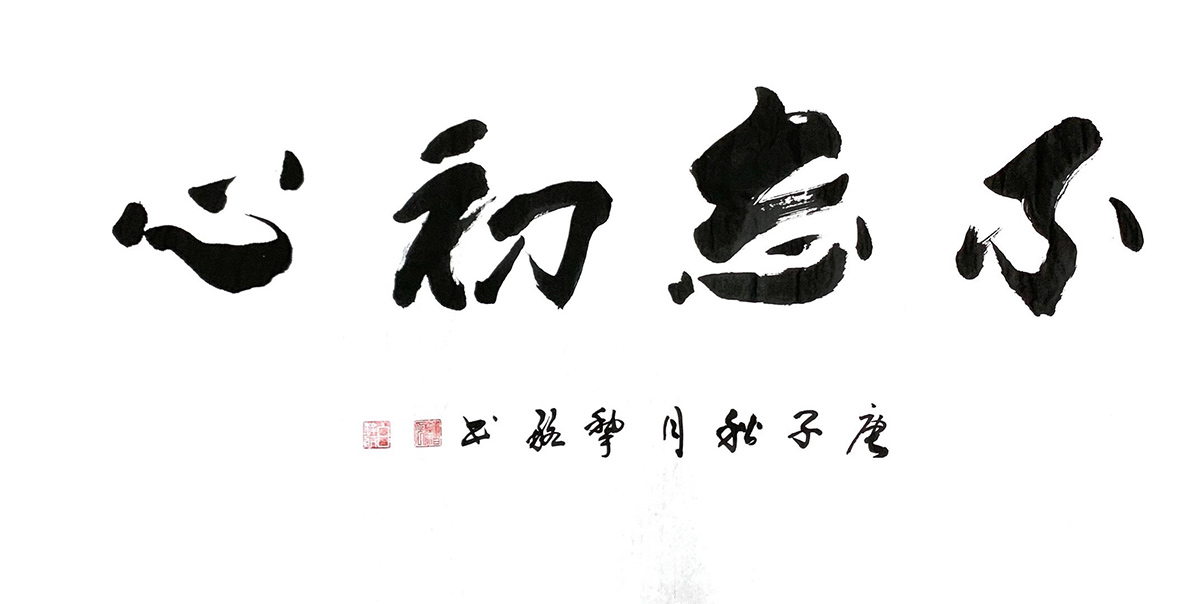 不忘初心
庚子秋月 书